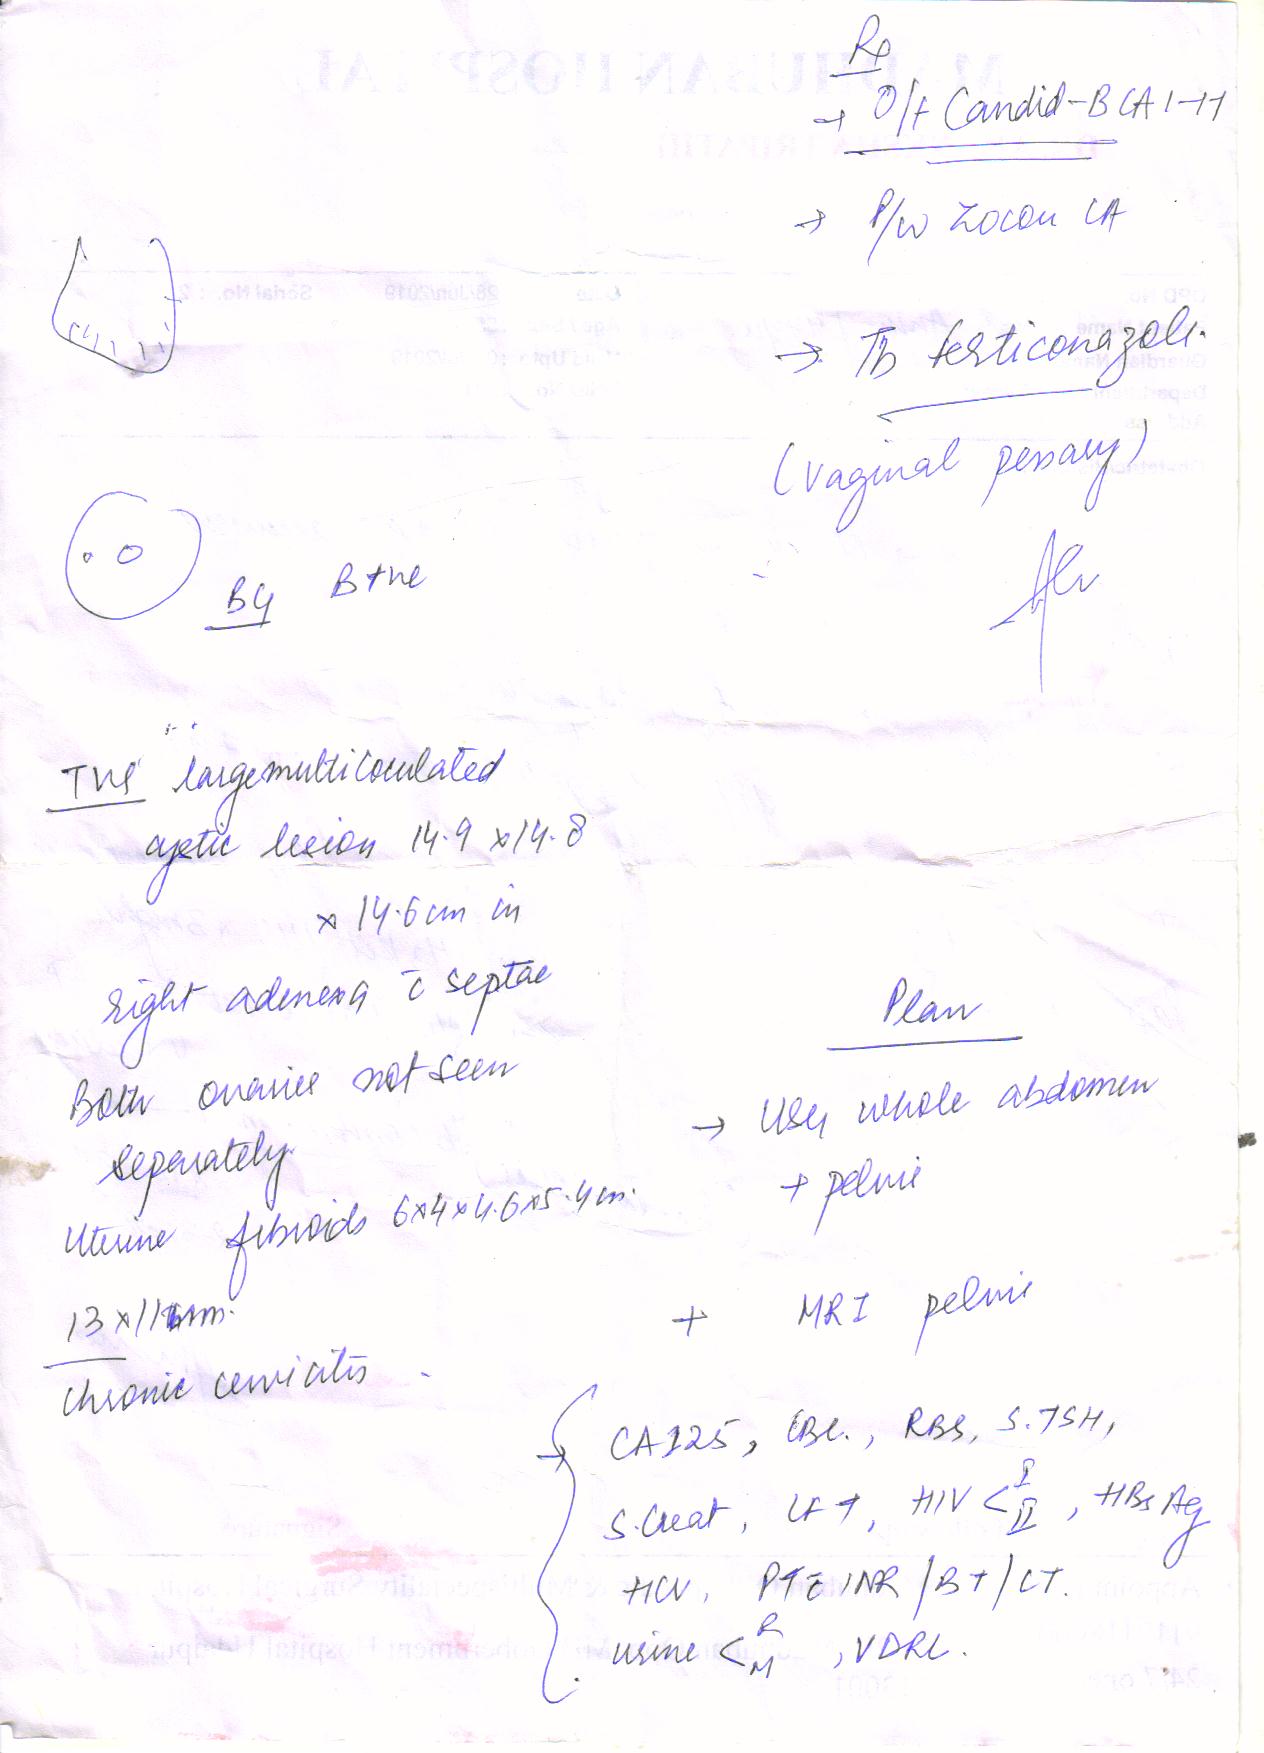 Rx
→ O/H Candid-B LA 1-H
→ P/w Zocon LA
→ Tb ferticonazole.
(vaginal pessary)
BG B+ve
TVS large multiloculated
cystic lesion 14.9 x 14.8
x 14.6 cm in
right adenexa c̄ septae
Both ovaries not seen
separately.
Uterine fibroids 6x4x4.6x5.4cm.
13 x 11 mm.
Chronic cervicitis
Plan
→ USG whole abdomen
+ pelvis
+ MRI pelvis
→ CA125, CBC., RBS, S.TSH,
S.Creat, LFT, HIV < I II, HBsAg
HCV, PT c̄ INR / BT / CT.
urine < R M, VDRL.